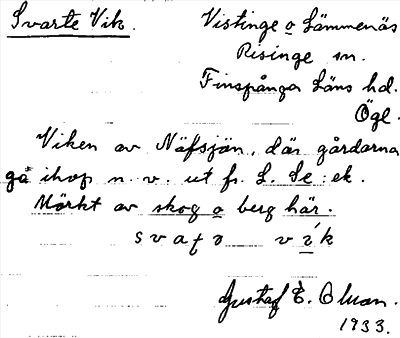 Svarte Vik. Vistinge o Lämmenäs
Risinge sn.
Finspånga Läns hd.
Ögl.
Viken av Näfsjön, där gårdarna
gå ihop n. v. ut fr. L. Se: ek.
Mörkt av skog o berg här.
svaʈə vík
Gustaf E. Olson.
1933.